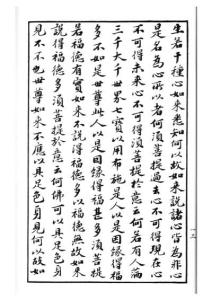 生若干種心如來悉知何以故如來說諸心皆為非心
是名為心所以者何須菩提過去心不可得現在心
不可得未來心不可得須菩提於意云何若有人滿
三千大千世界七寶以用布施是人以是因緣得福
多不如是世尊此人以是因緣得福甚多須菩提
若福德有實如來不說得福德多以福德無故如來
說得福德多須菩提於意云何佛可以具足色身
見不不也世尊如來不應以具足色身見何以故如